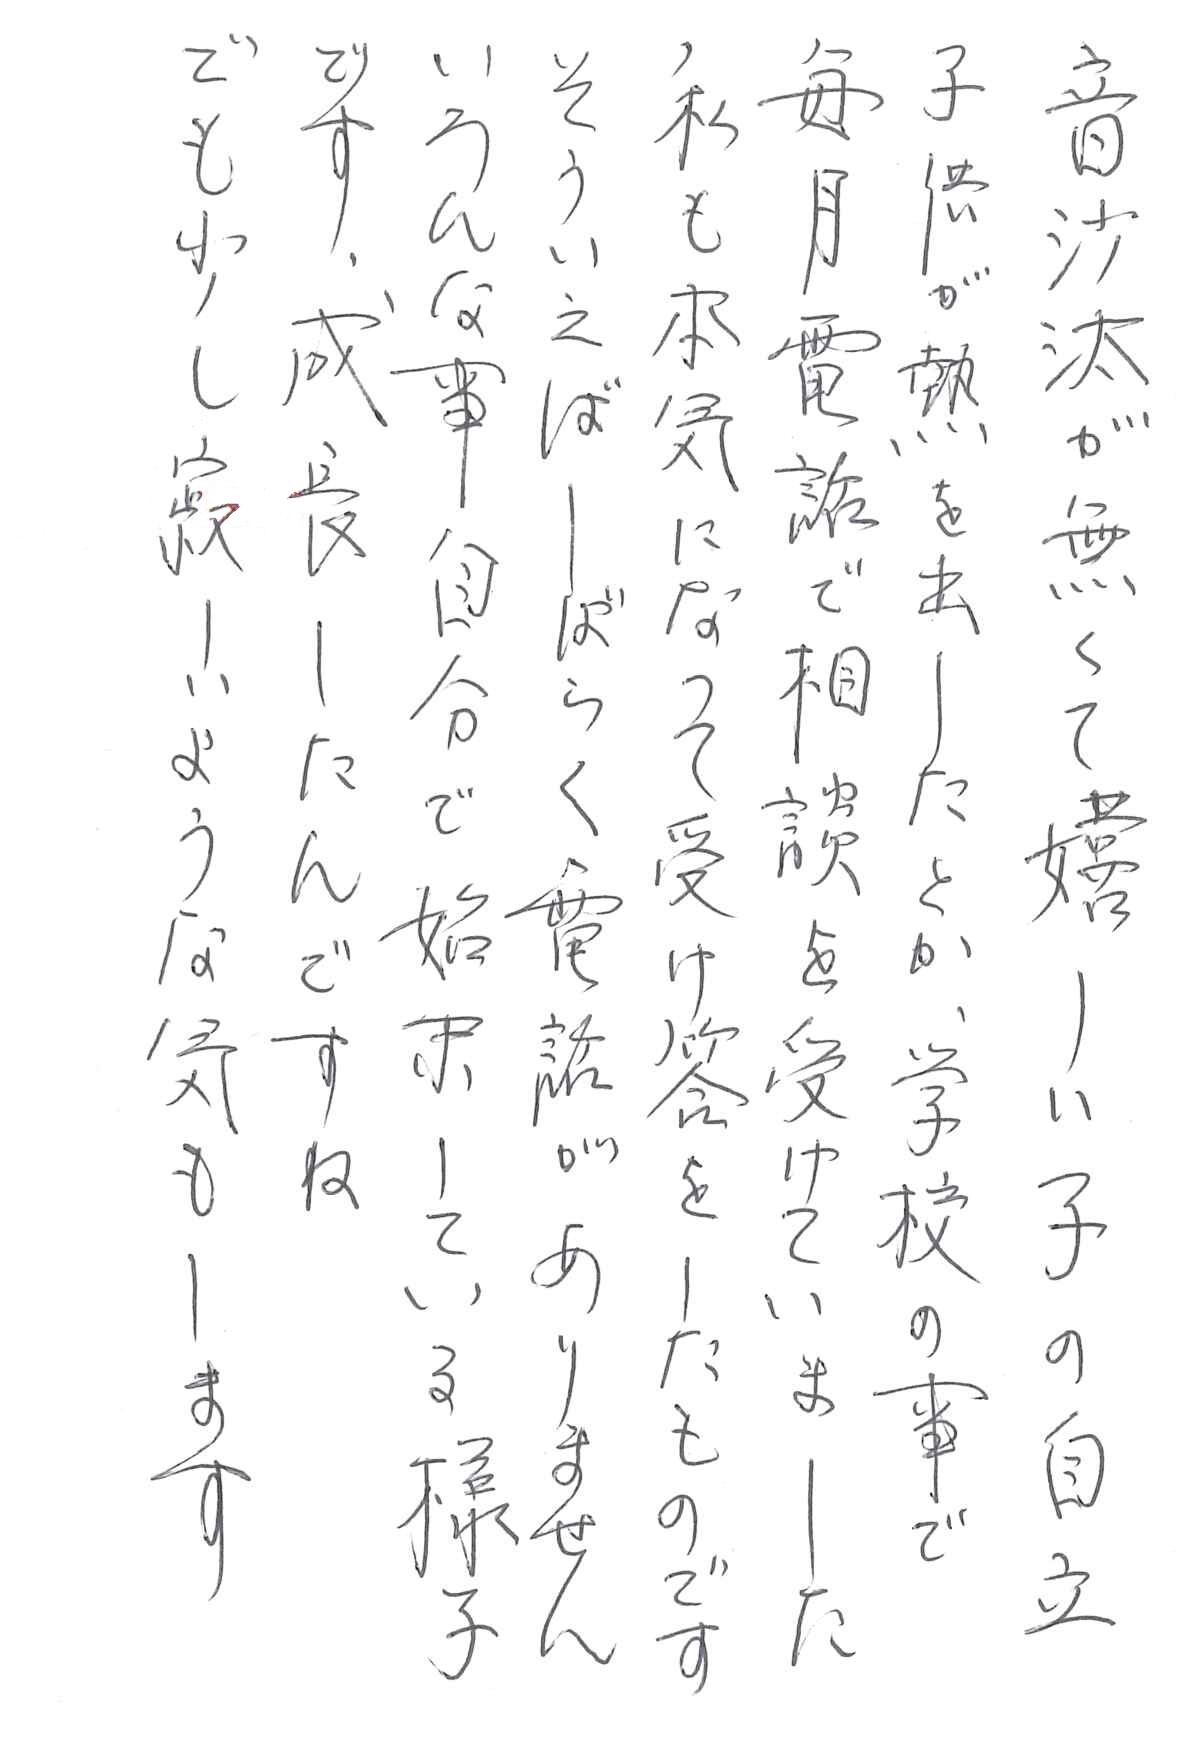 音沙汰が無くて嬉しい子の自立
子供が熱を出したとか、学校の事で
毎月電話で相談を受けていました
私も本気になって受け答をしたものです
そういえばしばらく電話がありません
いろんな事自分で始末している様子
です、成長したんですね
でも少し寂しいような気もします